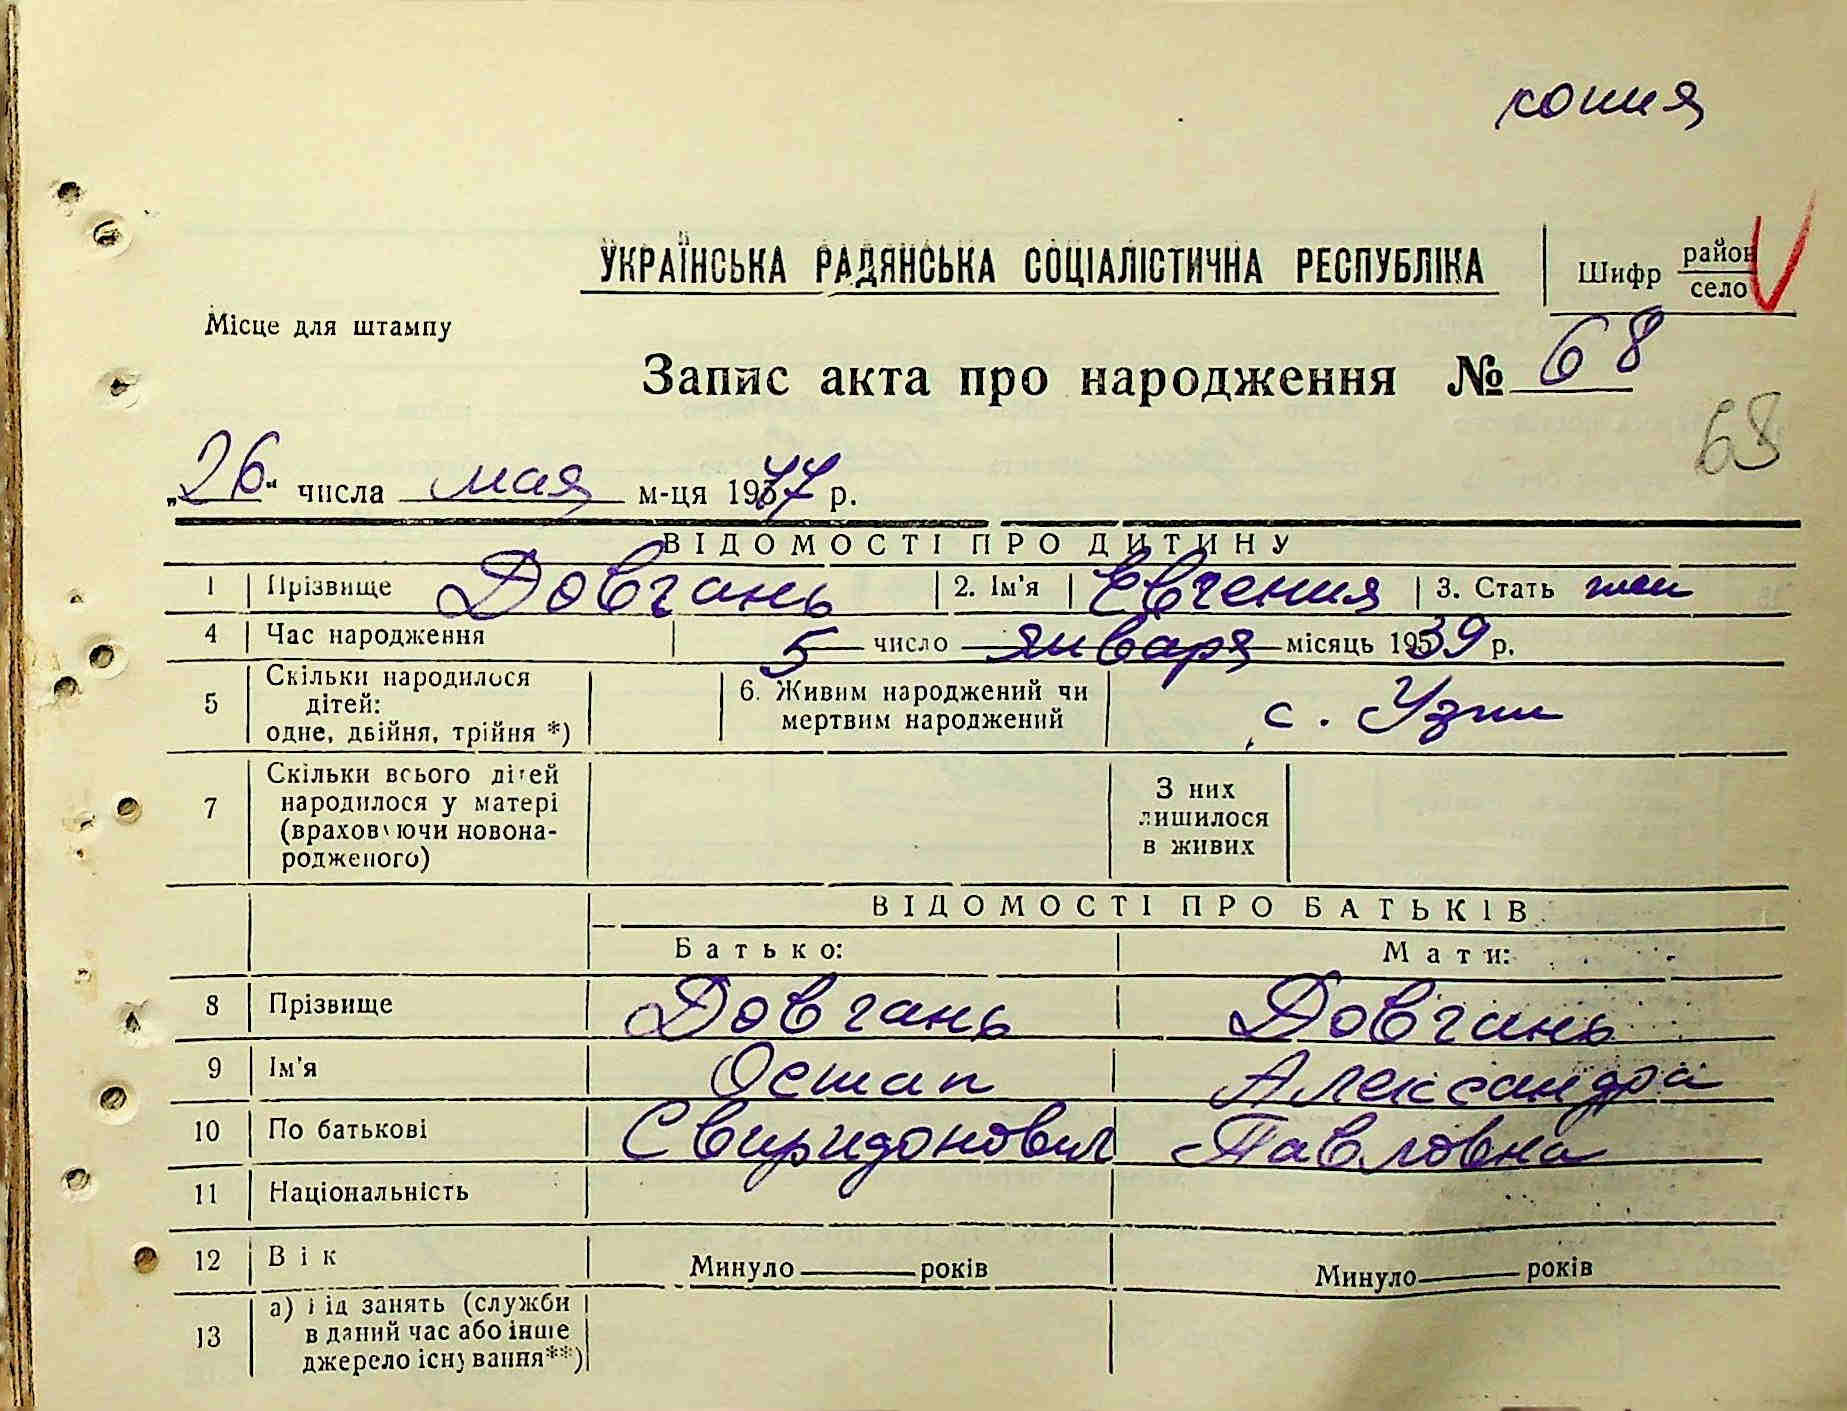 копия
УКРАЇНСЬКА РАДЯНСЬКА СОЦІАЛІСТИЧНА РЕСПУБЛІКА
Шифр район
село
Місце для штампу
Запис акта про народження № 68
68
„26“ числа мая м-ця 1947 р.
ВІДОМОСТІ ПРО ДИТИНУ
1 Прізвище Довгань 2. Ім'я Евгения 3. Стать жен
4 Час народження 5 число января місяць 1939 р.
5 Скільки народилося дітей: одне, двійня, трійня *) 6. Живим народжений чи мертвим народжений с. Узин
7 Скільки всього дітей народилося у матері (враховуючи новонародженого) З них лишилося в живих
ВІДОМОСТІ ПРО БАТЬКІВ
Батько: Мати:
8 Прізвище Довгань Довгань
9 Ім'я Остап Александра
10 По батькові Свиридонович Павловна
11 Національність
12 Вік Минуло ___ років Минуло ___ років
13 а) Рід занять (служби в даний час або інше джерело існування**)